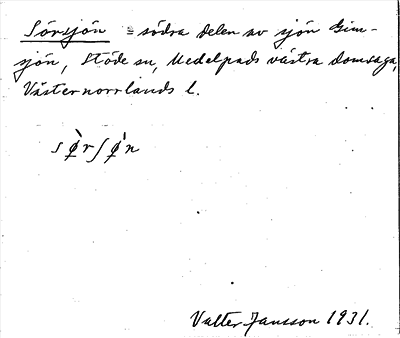 Sörsjön = södra delen av sjön Gim-
sjön, Stöde sn, Medelpads västra domsaga,
Västernorrlands l.
sø̀rʃø̍n
Valter Jansson 1931.